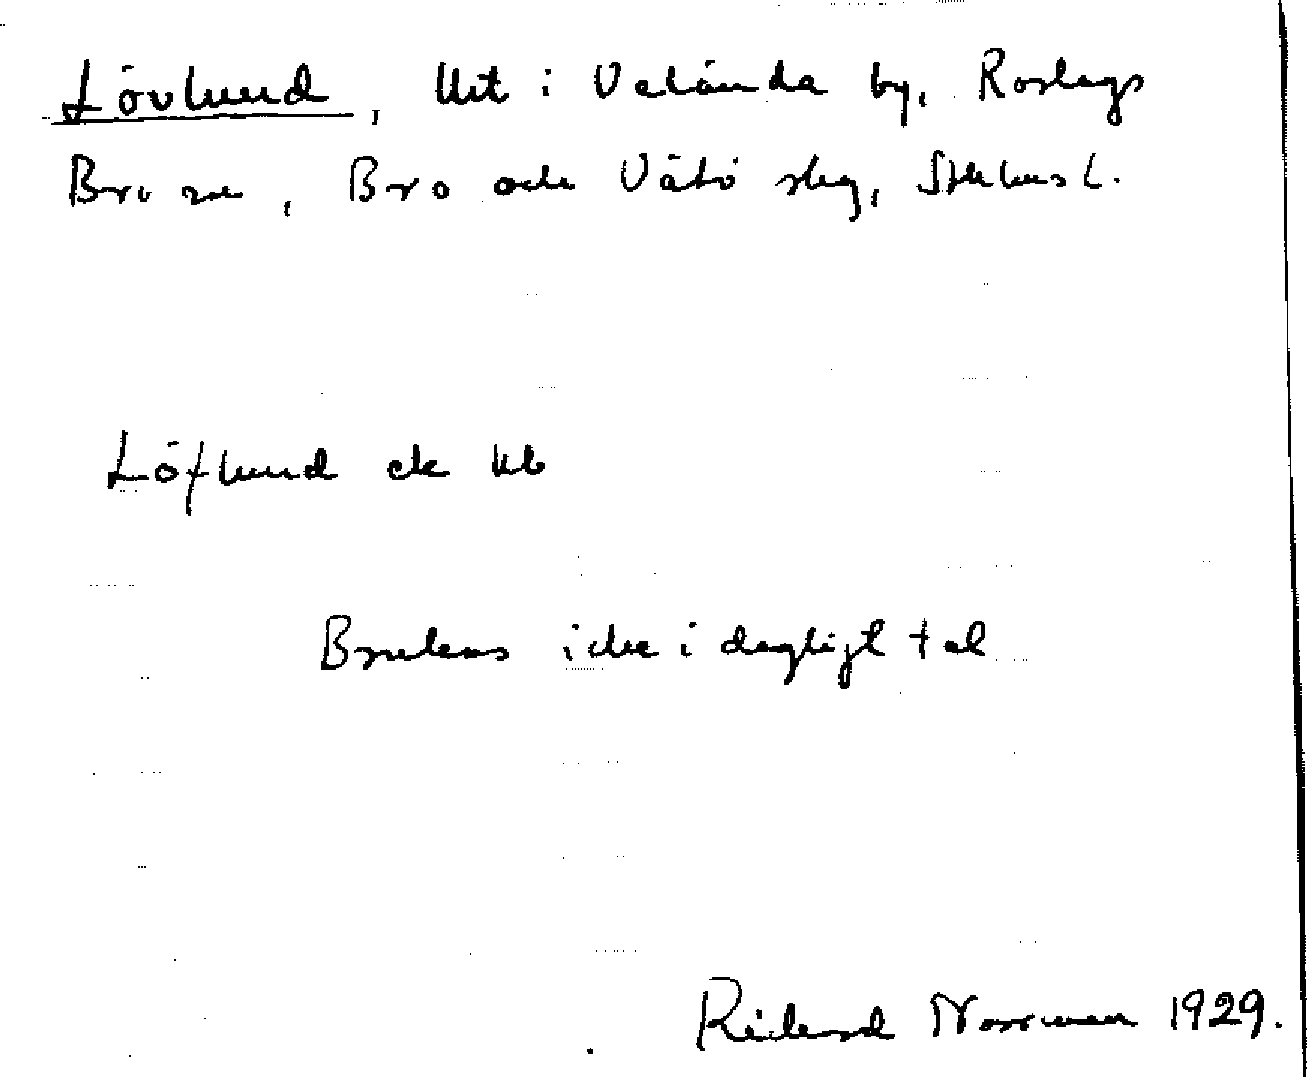 Lövlund, lht i Velånda by, Roslags
Bro sn, Bro och Vätö skg, Sthlms l.
Löflund ek kb
Brukas icke i dagligt tal
Rickard Norrman 1929.